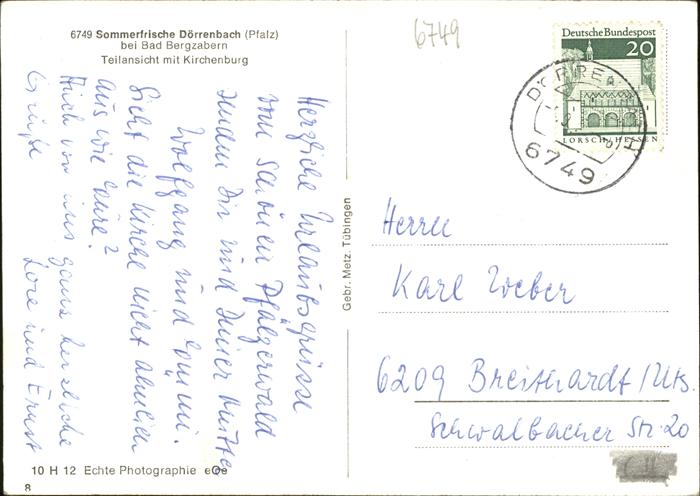 6749 Sommerfrische Dörrenbach (Pfalz)
bei Bad Bergzabern
Teilansicht mit Kirchenburg
Herzliche Urlaubsgrüsse
vom schönen Pfälzerwald
senden Dir und Deiner Mutter
Wolfgang und
Sieht die Kirche nicht ähnlich
aus wie Eure?
Auch von uns ganz herzliche
Grüße Lore und Ernst
10 H 12 Echte Photographie
8
Gebr. Metz, Tübingen
6749
Deutsche Bundespost
20
LORSCH/HESSEN
6749
Herrn
Karl Weber
6209 Breithardt/Uts.
Schwalbacher Str. 20